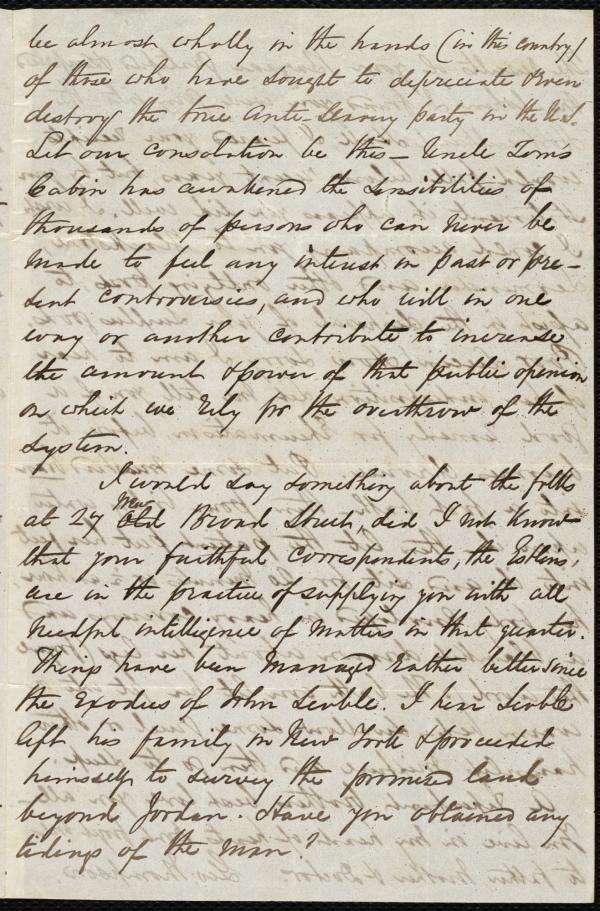 be almost wholly in the hands (in this country)
of those who have sought to depreciate & even
destroy the true Anti-Slavery party in the U.S.
Let our consolation be this – Uncle Tom's
Cabin has awakened the sensibilities of
thousands of persons who can never be
made to feel any interest in past or pre-
sent controversies, and who will in one
way or another contribute to increase
the amount & power of that public opinion
on which we rely for the overthrow of the
system.
I would say something about the folks
New
at 27 Old Broad Street, did I not know
that your faithful correspondents, the Estlins,
are in the practice of supplying you with all
needful intelligence of matters in that quarter.
Things have been managed rather better since
the Exodus of John Scoble. I hear Scoble
left his family in New York & proceeded
himself to survey the promised land
beyond Jordan. Have you obtained any
tidings of the man?